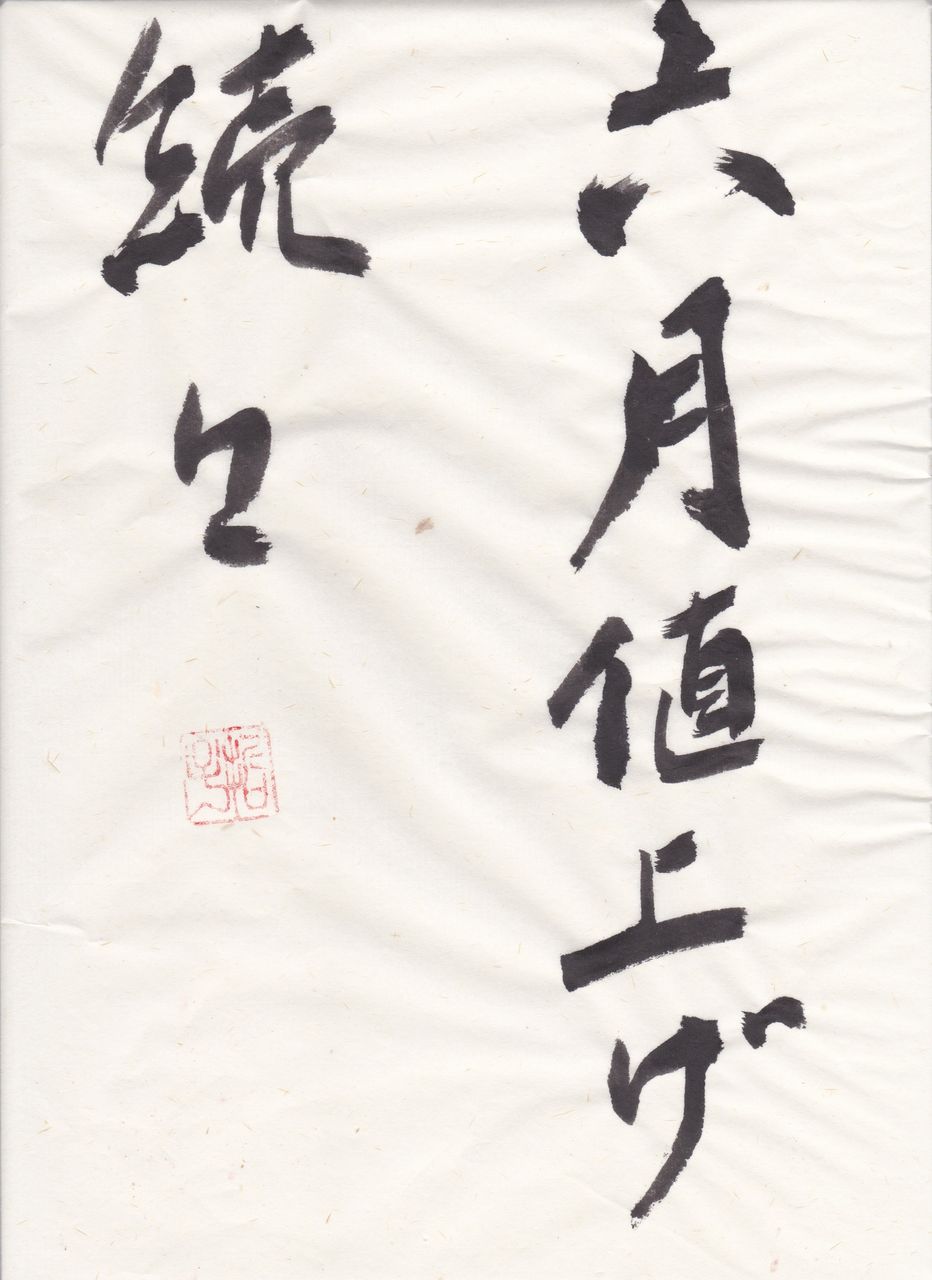 六月値上げ
続々